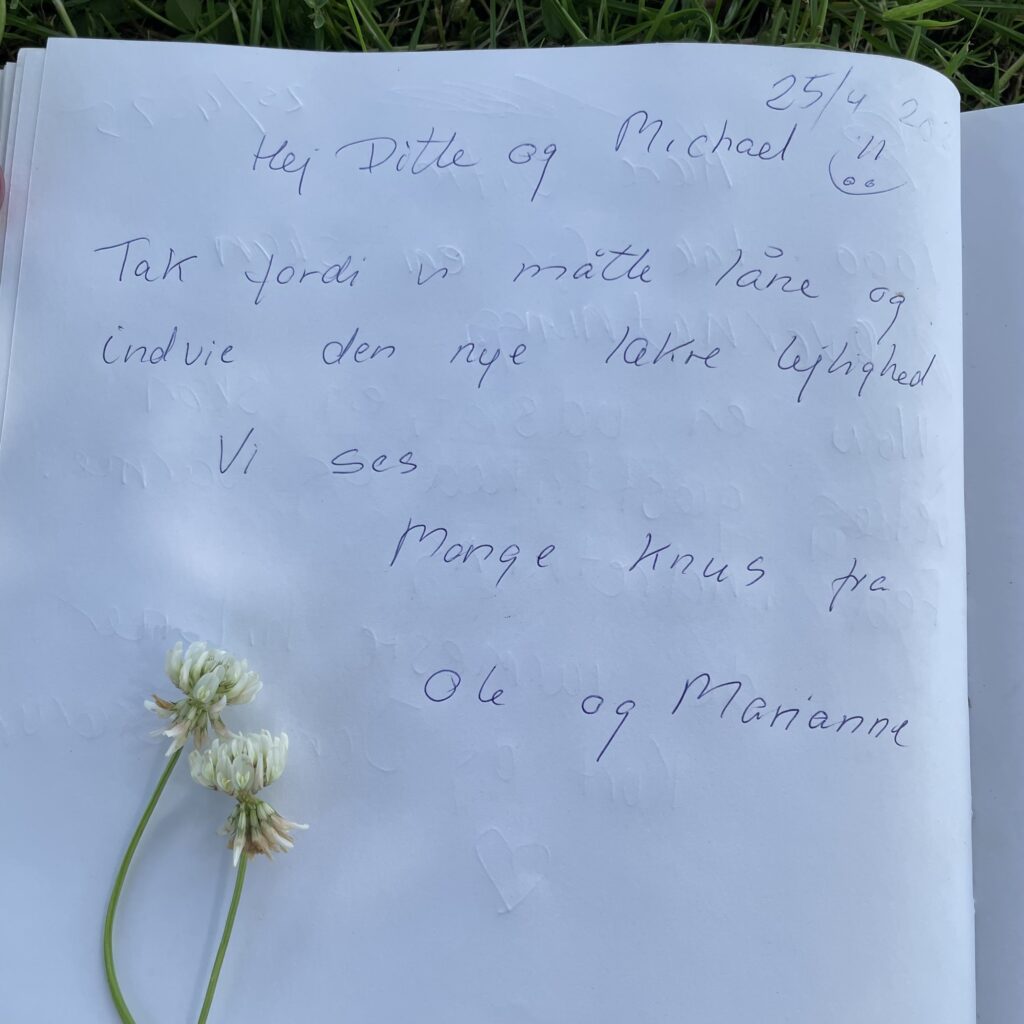 25/4
Hej Ditte og Michael
Tak fordi vi måtte låne og
indvie den nye lækre lejlighed
Vi ses
Mange knus fra
Ole og Marianne